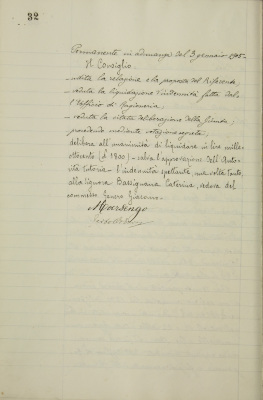 32
Provveduto in adunanza del 3 gennaio 1905.
Il Consiglio
- udita la relazione e la proposta del Referente
- veduta la liquidazione d'indennità fatta dal-
l'Ufficio di Ragioneria;
- veduta la citata deliberazione della Giunta;
procedendo mediante votazione segreta,
delibera all'unanimità di liquidare in lire mille-
ottocento (£ 1800) - salva l'approvazione dell'Auto-
rità tutoria - l'indennità spettante, una volta tanto,
alla signora Barsignana Caterina, vedova del
commesso
Marsengo